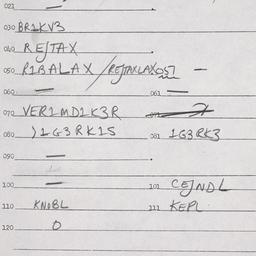 021 —
030 BR1KV3
040 REJTAX
050 R1BALAX /REJTAXLAX 051 —
060 — 061 —
070 VER1MD1K3R
080 )1G3RK1S 081 1G3RK3
090 —
100 — 101 CEJNDL
110 KNOBL 111 KEPL
120 O